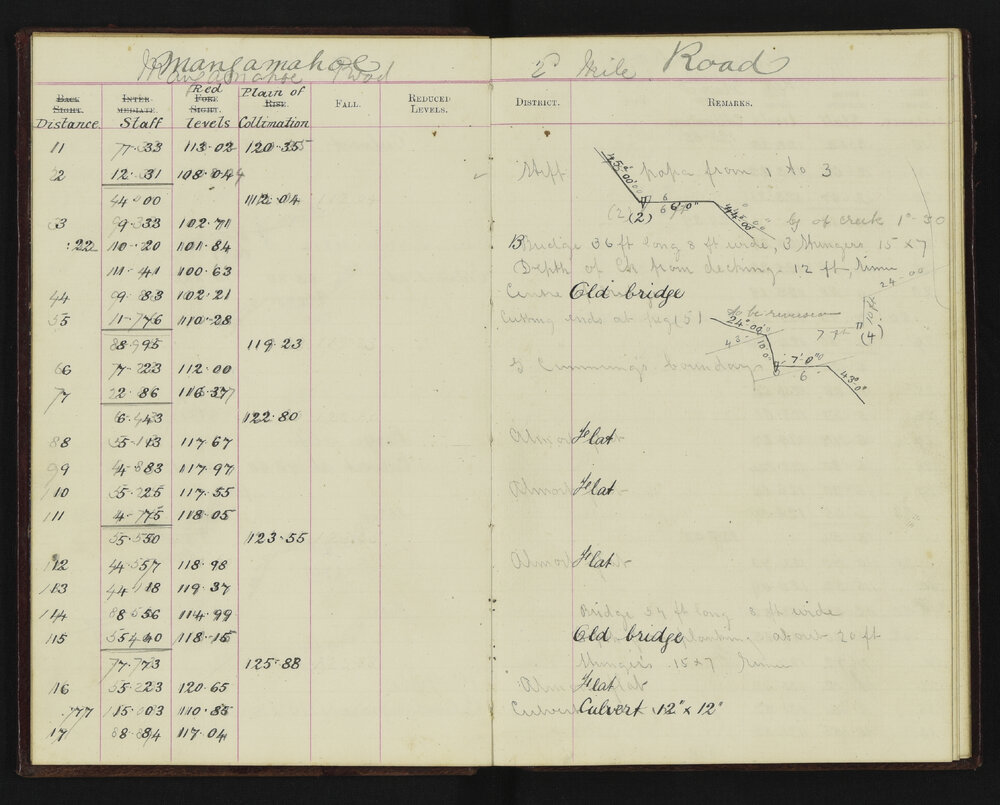 Mangamahoe Road 2 Mile Road
Back Sight. Inter-mediate. Fore Sight. Rise. Fall. Reduced Levels. District. Remarks.
Distance Staff Red levels Plain of Collimation
1 7.33 113.02 120.35
2 12.31 108.04 Stiff papa from 1 to 3 45°00'
4.00 112.04 (2) 6 44°00'
3 9.33 102.71 of creek 1°-30
.22 10.20 101.84 Bridge 36 ft long 8 ft wide, 3 Stringers 15 x 7
11.41 100.63 Depth of Ck from decking 12 ft, rimu
4 9.83 102.21 Centre Old bridge 24 00
5 11.76 110.28 Cutting ends at peg (5) to be removed 24°00' (4)
8.95 119.23
6 7.23 112.00 Cummings boundary 7'0" 6 43°0'
7 2.86 116.37
6.43 122.80
8 5.13 117.67 Almost Flat
9 4.83 117.97
10 5.25 117.55 Almost Flat
11 4.75 118.05
5.50 123.55
12 4.57 118.98 Almost Flat
13 4.18 119.37
14 8.56 114.99 Bridge 57 ft long 8 ft wide
15 5.40 118.15 Old bridge planking about 20 ft
7.73 125.88 Stringers 15x7 Rimu
16 5.23 120.65 Almost Flat
.77 15.03 110.85 Culvert 12" x 12"
17 8.84 117.04